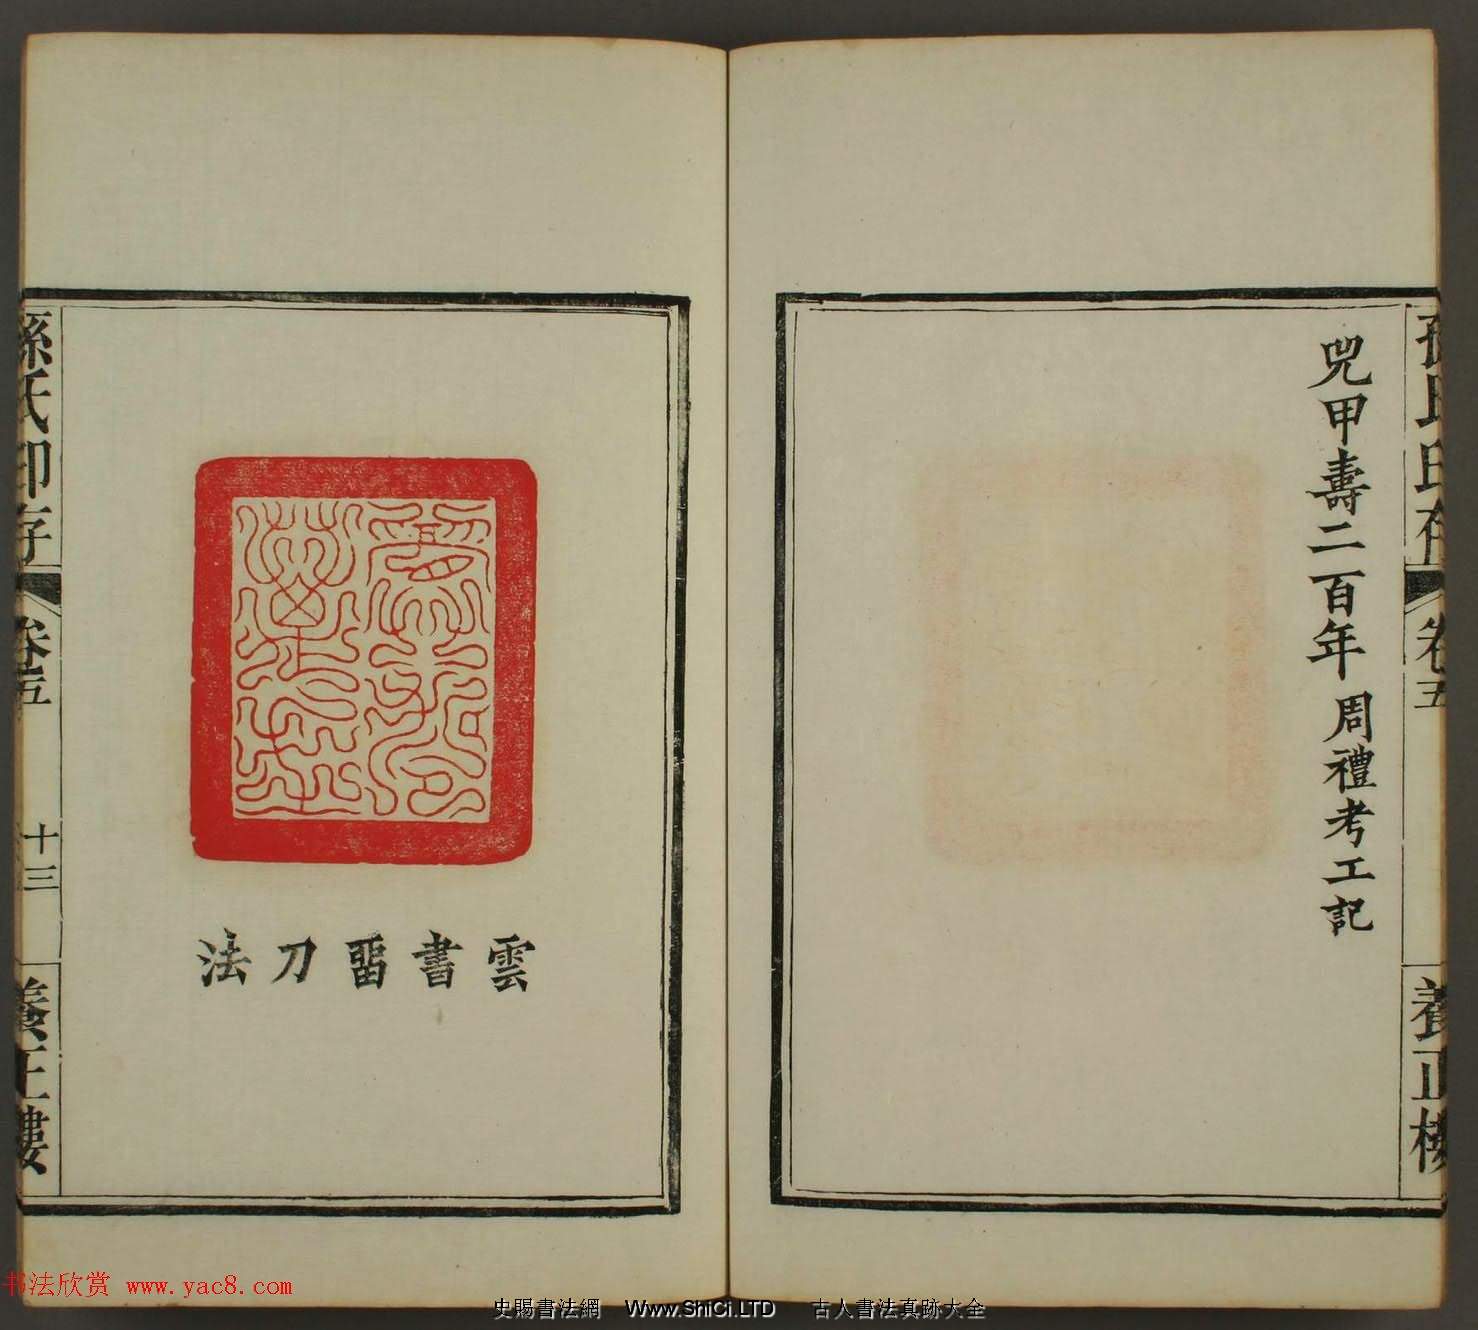 兕甲壽二百年 周禮考工記
孫氏印存
卷五
養正樓
雲書畱刀法
孫氏印存
卷五
十三
養正樓
书法欣赏 www.yac8.com
史賜書法網 Www.ShiCi.LTD 古人書法真跡大全